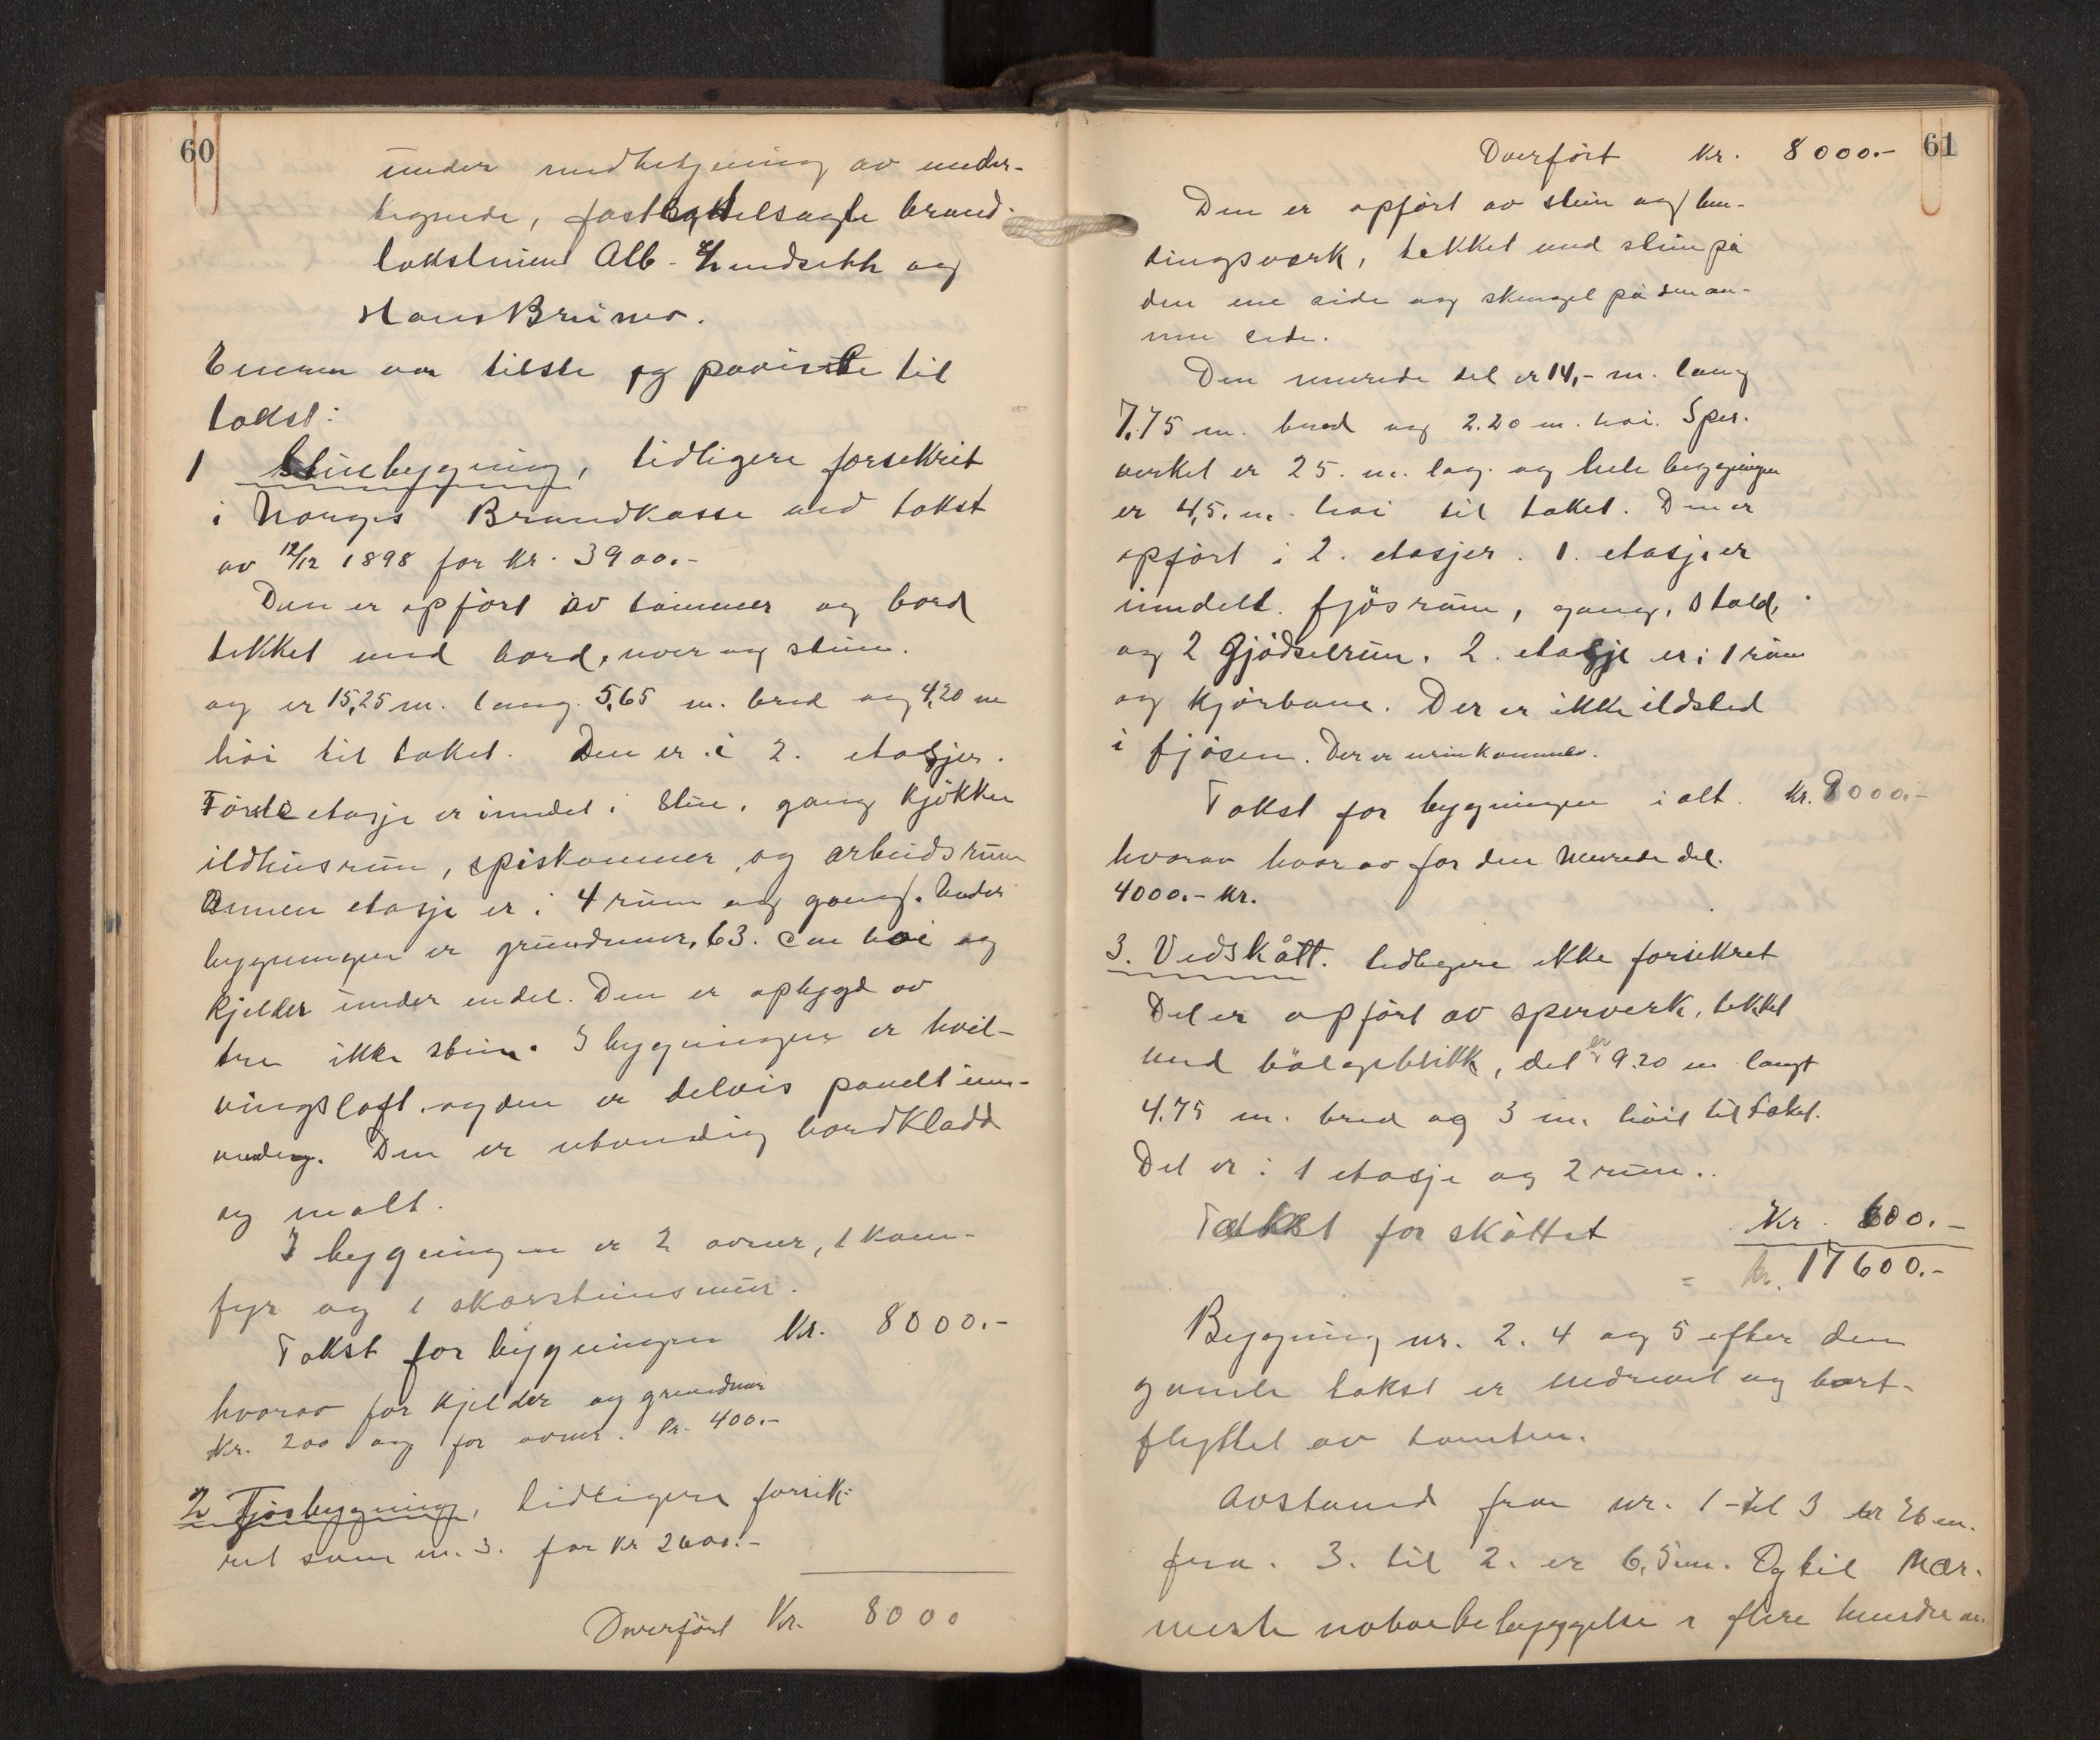 60
under medbetjening av under-
tegnede, fastbyttelsagte brand-
takstmenn Alb. Lundsetth og
Hans Brimo.
Eieren var tilste og paaviste til
takst:
1 Stuebygning, tidligere forsekrit
i Norges Brandkasse ved takst
av 12/12 1898 for kr. 3900.-
Den er opført av tømmer og bord
tekket med bord, never og stein.
og er 15,25 m. lang. 5,65 m. bred og 4,20 m
høi til taket. Den er i 2. etasjer.
Første etasje er inndel i Stue, gang kjøkken
ildhusrum, spiskammer, og arbeidsrum
Annen etasje er i 4 rum og gang. Under
bygningen er grundmur, 63. cm høi og
Kjelder under endel. Den er opbygd av
tre ikke stein. I bygningen er hvel-
vingsloft, og den er delvis panelt inn-
vendig. Den er utvendig bordkladd
og malt.
I bygningen er 2 ovner, 1 kom-
fyr og 1 skorsteinsmur.
Takst for bygningen kr. 8000.-
hvorav for kjelder og grundmur
kr. 200 og for ovner. kr. 400.-
2 Fjøsbygning, tidligere forsik-
ret som nr. 3. for kr 2600.-
Overført Kr. 8000
61
Overført kr. 8000.-
Den er opført av stein og bin-
dingsverk, tekket med stein på
den ene side og skengel på den an-
nen side.
Den murede del er 14,- m. lang
7,75 m. bred og 2.20 m. høi. Sper-
verket er 25. m. lag. og hele bygningen
er 4,5. m. høi til taket. Den er
opført i 2. etasjer. 1. etasje er
inndelt. fjøsrum, gang, stald,
og 2 Gjødselrum. 2. etasje er i 1 rum
og Kjørbane. Der er ikke ildsted
i fjøsen. Der er urinkammer.
Takst for bygningen i alt. kr. 9000.-
hvorav hvorav for den Murede del.
4000.- kr.
3. Vedskått. tidligere ikke forsikret
Det er opført av sperverk, tekket
med bølgeblikk, det er 9.20 m langt
4.75 m. bred og 3 m. høit til taket.
Det er i 1 etasje og 2 rum.
Takst for skåttet Kr. 600.-
= kr. 17600.-
Bygning nr. 2. 4 og 5 efter den
gamle takst er nedrevet og bort-
flyttet av tomten.
Avstand fra nr. 1 til 3 er 26 m.
fra. 3. til 2. er 6,5 m. Og til Nær-
meste nabobebyggelse er flere hundre m.